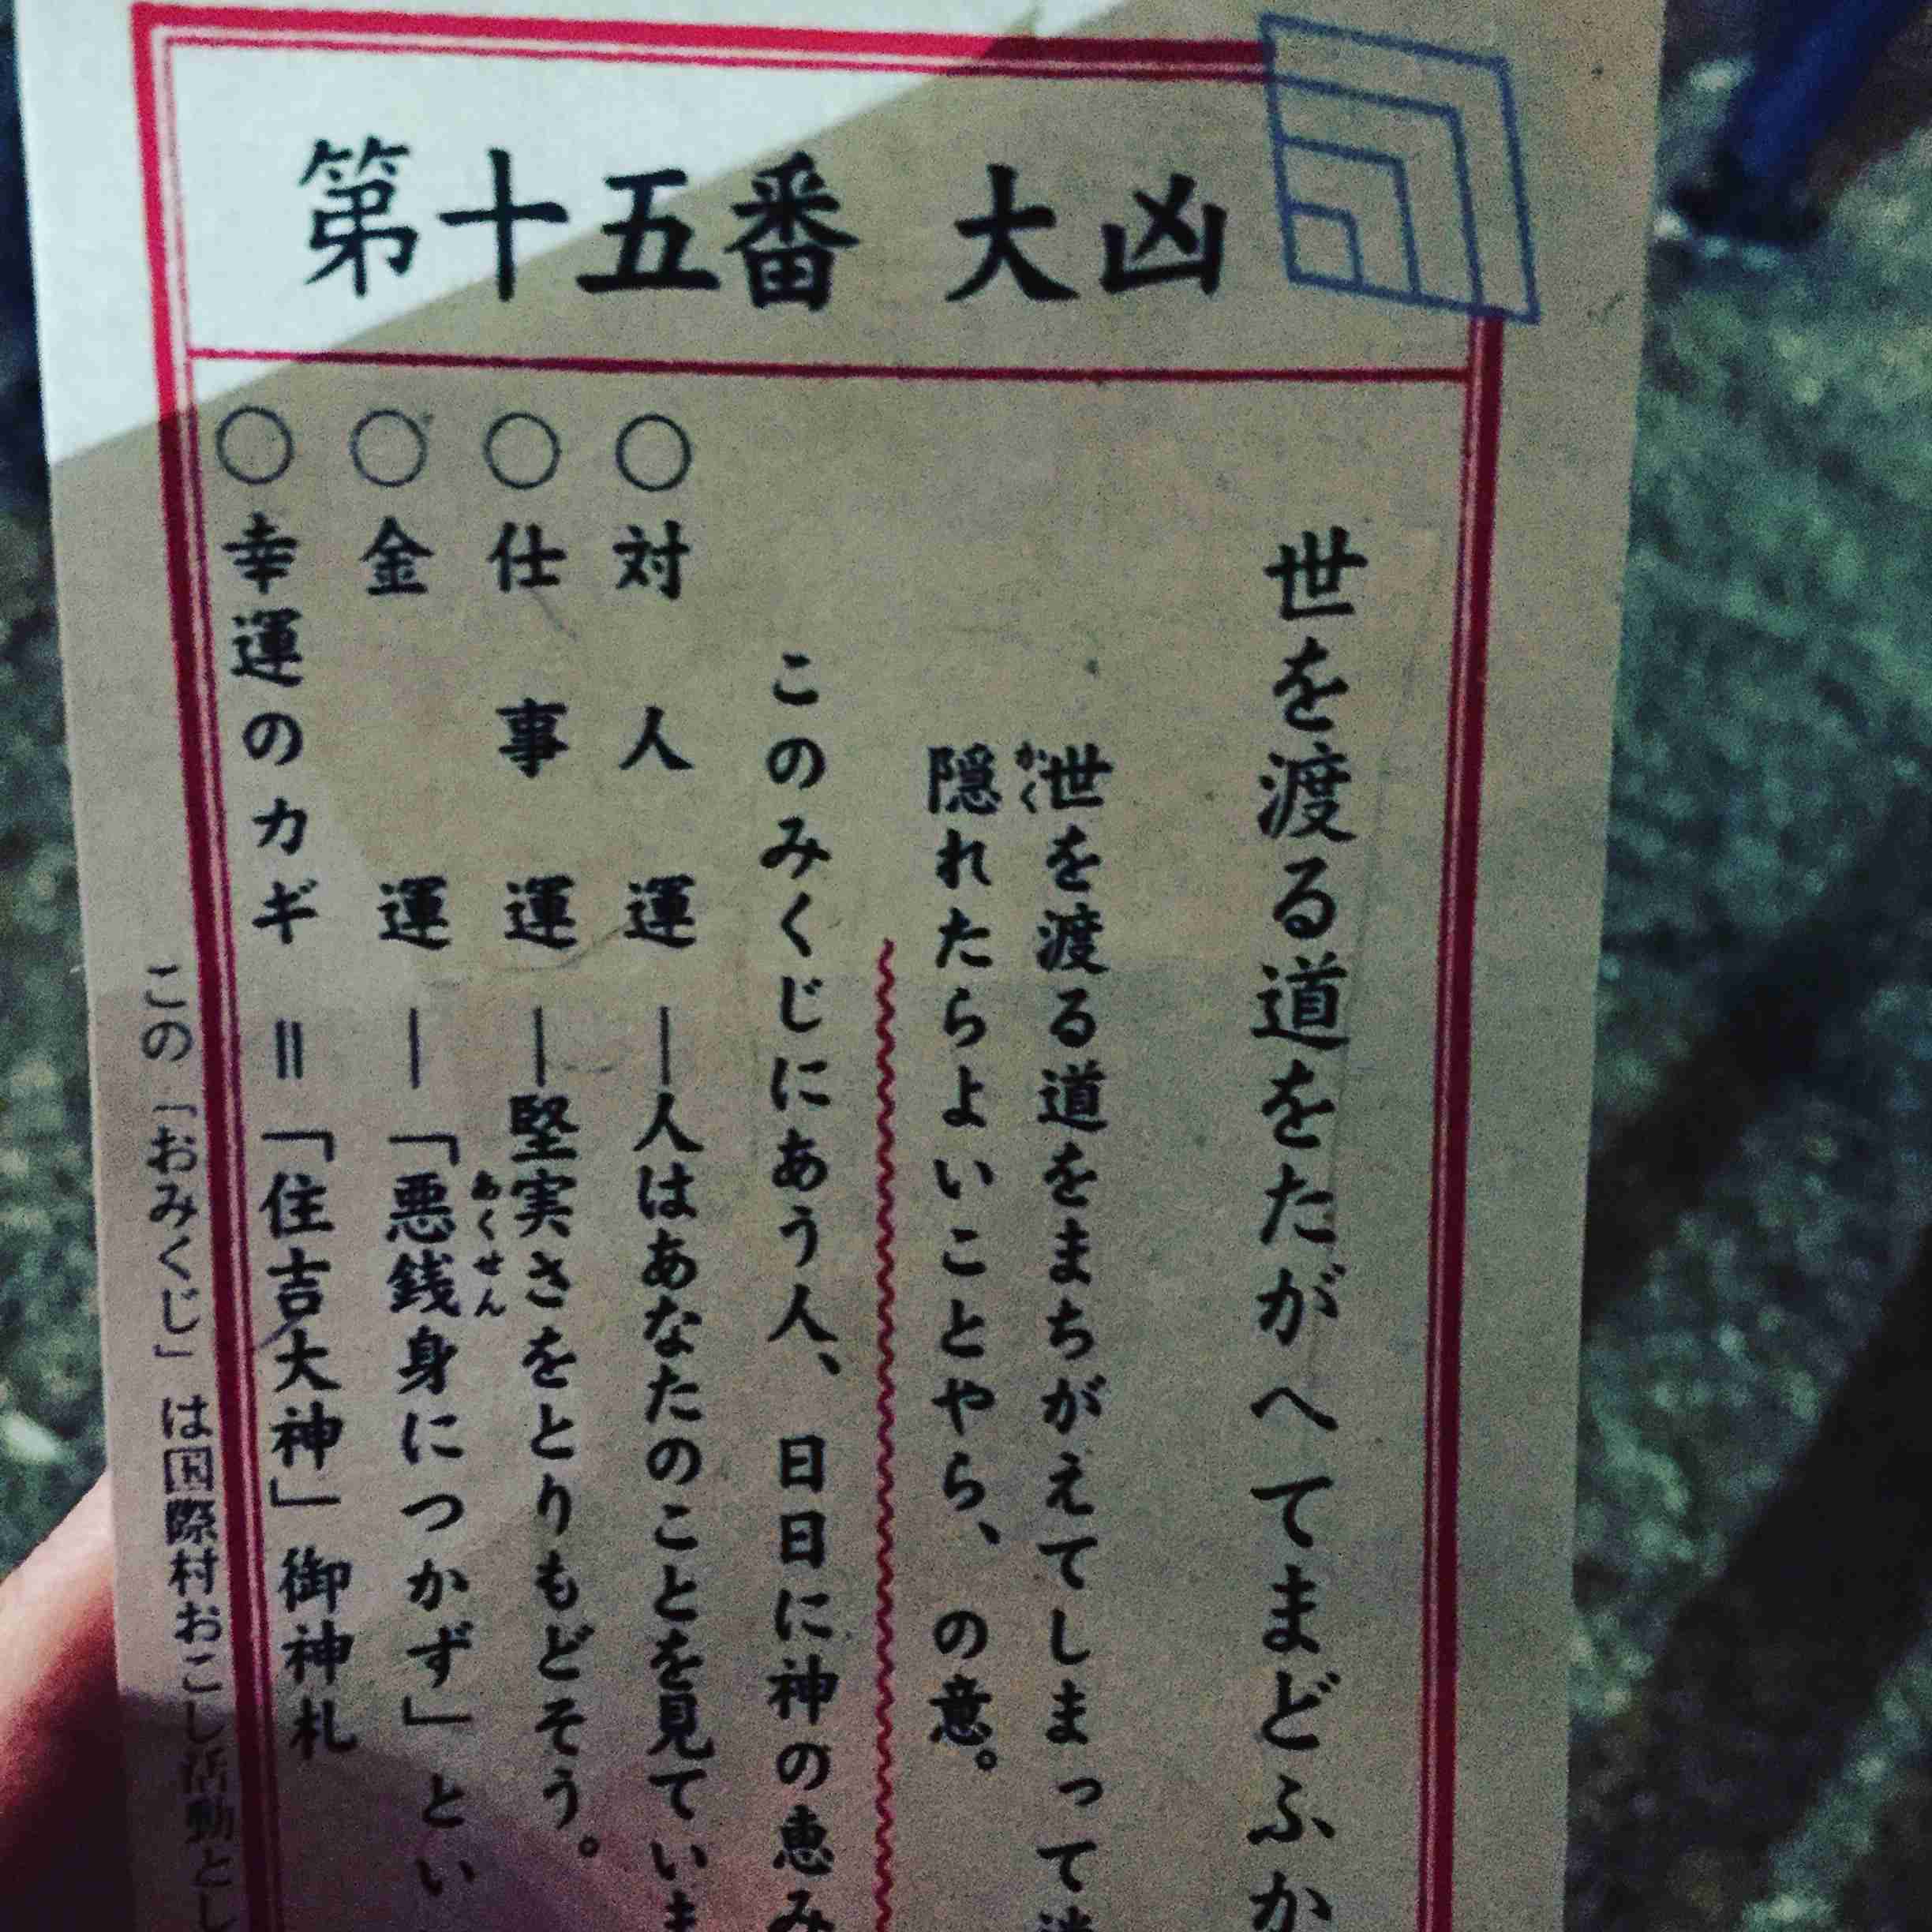 第十五番 大凶
世を渡る道をたがへてまどふか
世を渡る道をまちがえてしまって
隠れたらよいことやら、の意。
かく
このみくじにあう人、日日に神の恵み
○対人運―人はあなたのことを見ていま
○仕事運―堅実さをとりもどそう。
○金運―「悪銭身につかず」とい
あくせん
○幸運のカギ＝「住吉大神」御神札
この「おみくじ」は国際村おこし活動とし